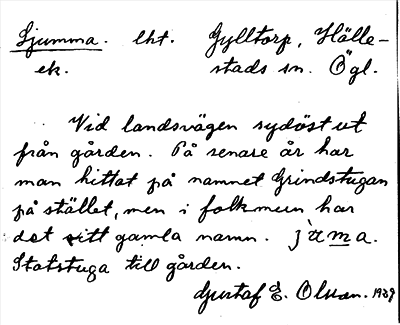 Ljumma. lht. Gylltorp, Hälle-
ek. stads sn. Ögl.
Vid landsvägen sydöst ut
från gården. På senare år har
man hittat på namnet Grindstugan
på stället, men i folkmun har
det sitt gamla namn.
Statstuga till gården.
Gustaf E. Olsson. 1929